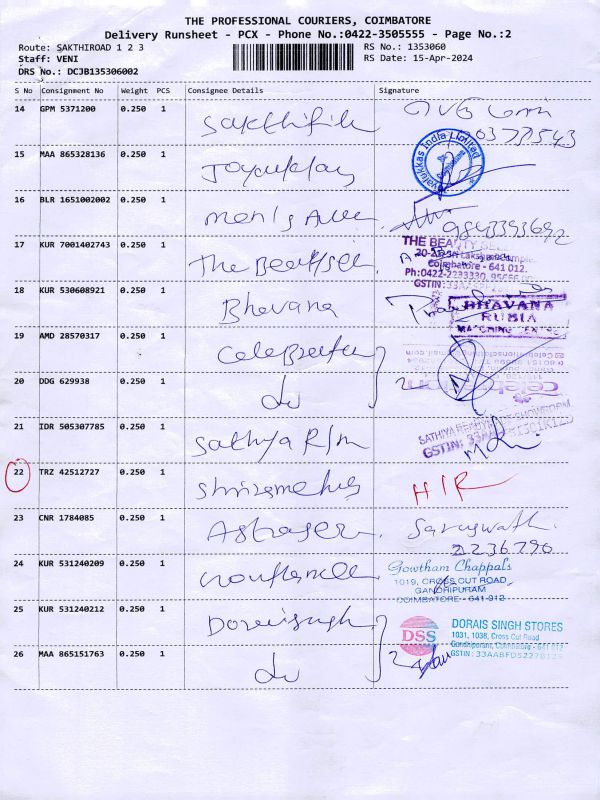 THE PROFESSIONAL COURIERS, COIMBATORE
Delivery Runsheet - PCX - Phone No.:0422-3505555 - Page No.:2
Route: SAKTHIROAD 1 2 3 RS No.: 1353060
Staff: VENI RS Date: 15-Apr-2024
DRS No.: DCJB135306002
S No Consignment No Weight PCS Consignee Details Signature
14 GPM 5371200 0.250 1
15 MAA 865328136 0.250 1
Joyalukkas India Limited
16 BLR 1651002002 0.250 1 Men's Ave 9843393692
17 KUR 7001402743 0.250 1 The Beauty
THE BEAUTY
Coimbatore - 641 012.
Ph:0422-2233330,
GSTIN:
18 KUR 530608921 0.250 1 Bhavana
BHAVANA
RUBIA
MATCHING CENTRE
19 AMD 28570317 0.250 1
20 DDG 629938 0.250 1 du 2
21 IDR 505307785 0.250 1 Sathiya R/m
SATHIYA
GSTIN:
22 TRZ 42512727 0.250 1 H/R
23 CNR 1784085 0.250 1 Saraswathi
2236790
24 KUR 531240209 0.250 1
Gowtham Chappals
1019, CROSS CUT ROAD,
GANDHIPURAM
COIMBATORE - 641 012
25 KUR 531240212 0.250 1 Doraisingh
DSS
DORAIS SINGH STORES
1031, 1038, Cross Cut Road
Gandhipuram, Coimbatore - 641 012
26 MAA 865151763 0.250 1 du 2